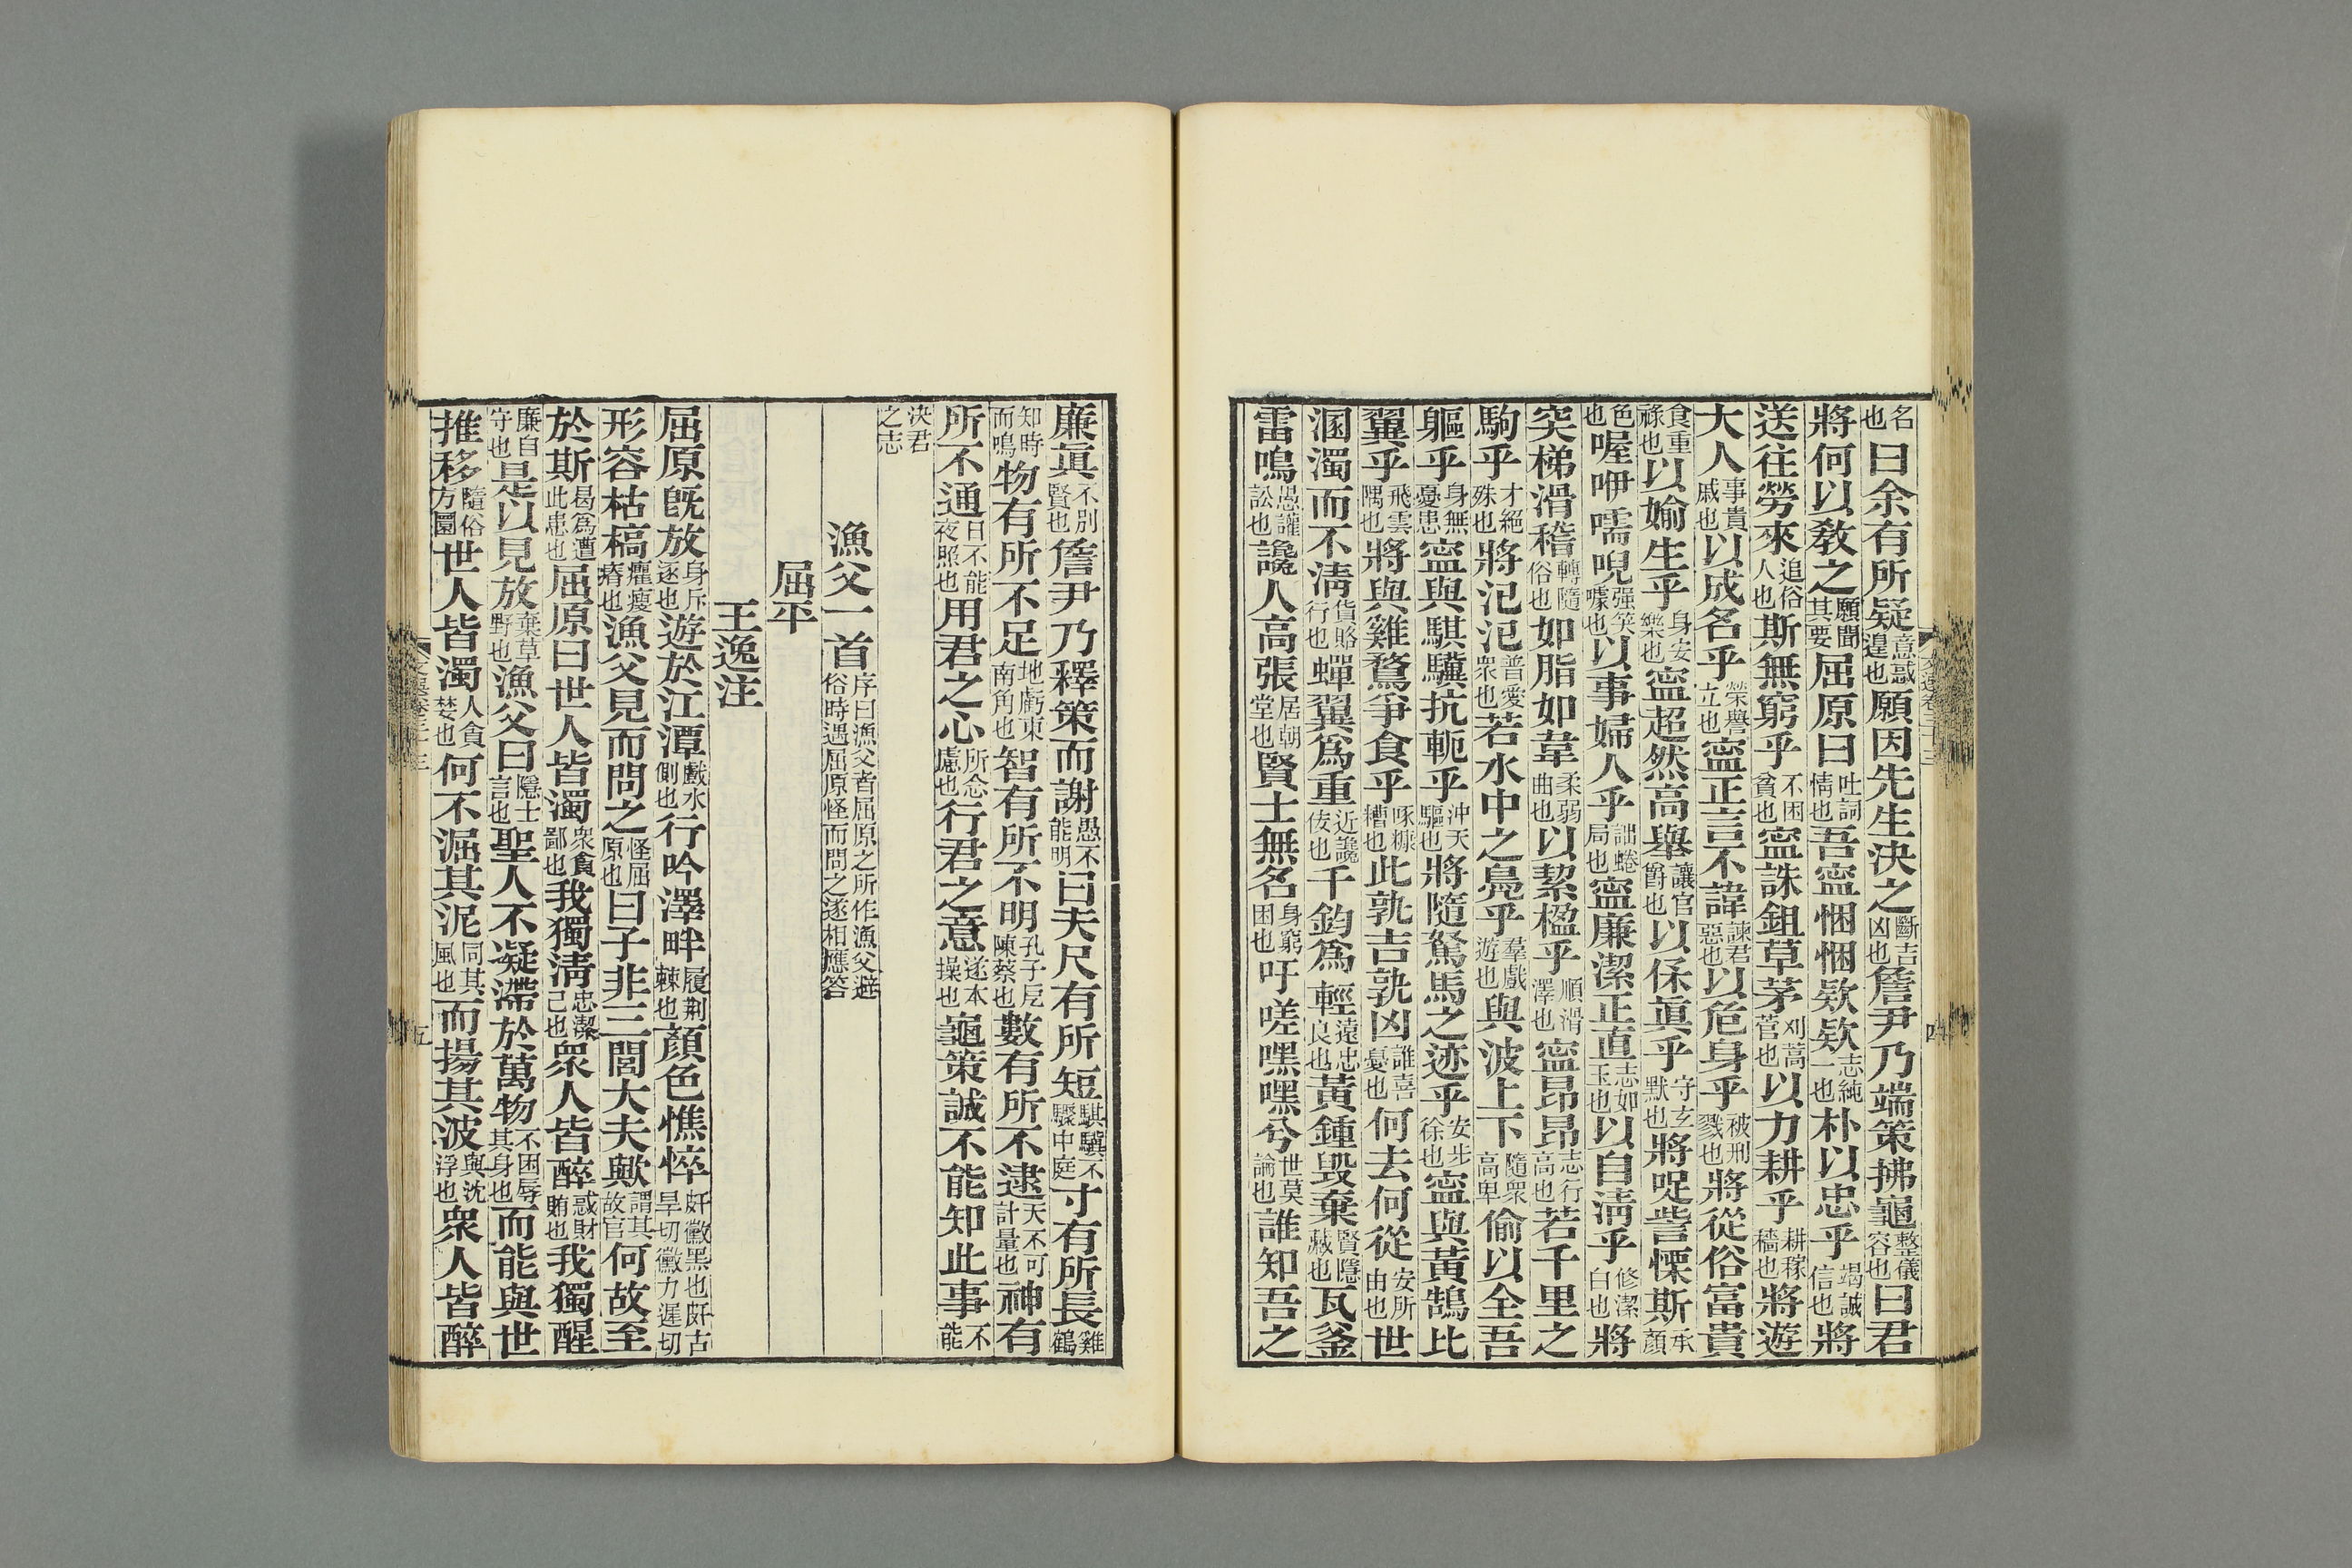 名也曰余有所疑意惑遑也願因先生決之斷吉凶也詹尹乃端策拂龜整儀容也曰君
將何以敎之願聞其要屈原曰吐詞情也吾寍悃悃欵欵志純一也朴以忠乎竭誠信也將
送往勞來追俗人也斯無窮乎不困貧也寍誅鉏草茅刈蒿菅也以力耕乎耕稼穡也將遊
大人事貴戚也以成名乎榮譽立也寍正言不諱諫君惡也以危身乎被刑戮也將從俗富貴
食重祿也以媮生乎身安樂也寍超然高舉讓官爵也以保眞乎守玄默也將哫訾慄斯承顏
色也喔咿嚅唲强笑噱也以事婦人乎詘蜷局也寍廉潔正直志如玉也以自淸乎修潔白也將
突梯滑稽轉隨俗也如脂如韋柔弱曲也以絜楹乎順滑澤也寍昂昂志行高也若千里之
駒乎才絕殊也將氾氾普愛衆也若水中之鳧乎羣戲遊也與波上下隨衆高卑偷以全吾
軀乎身無憂患寍與騏驥抗軛乎沖天驅也將隨駑馬之迹乎安步徐也寍與黃鵠比
翼乎飛雲隅也將與雞鶩爭食乎啄糠糟也此孰吉孰凶誰喜憂也何去何從安所由也世
溷濁而不淸貨賂行也蟬翼爲重近讒佞也千鈞爲輕遠忠良也黃鍾毀棄賢隱藏也瓦釜
雷鳴愚讙訟也讒人高張居朝堂也賢士無名身窮困也吁嗟嘿嘿兮世莫論也誰知吾之
廉眞不別賢也詹尹乃釋策而謝愚不能明曰夫尺有所短騏驥不驟中庭寸有所長雞鶴
知時而鳴物有所不足地虧東南角也智有所不明孔子戹陳蔡也數有所不逮天不可計量也神有
所不通日不能夜照也用君之心所念慮也行君之意遂本操也龜策誠不能知此事不能
決君之志
漁父一首序曰漁父者屈原之所作漁父避俗時遇屈原怪而問之遂相應答
屈平
王逸注
屈原旣放身斥逐也遊於江潭戲水側也行吟澤畔履荆棘也顏色憔悴皯黴黑也皯古旱切黴力遲切
形容枯槁癯瘦瘠也漁父見而問之怪屈原也曰子非三閭大夫歟謂其故官何故至
於斯曷爲遭此患也屈原曰世人皆濁衆貪鄙也我獨淸忠潔己也衆人皆醉惑財賄也我獨醒
廉自守也是以見放棄草野也漁父曰隱士言也聖人不凝滯於萬物不困辱其身也而能與世
推移隨俗方圓世人皆濁人貪婪也何不淈其泥同其風也而揚其波與沈浮也衆人皆醉
文選卷三十三
四
五